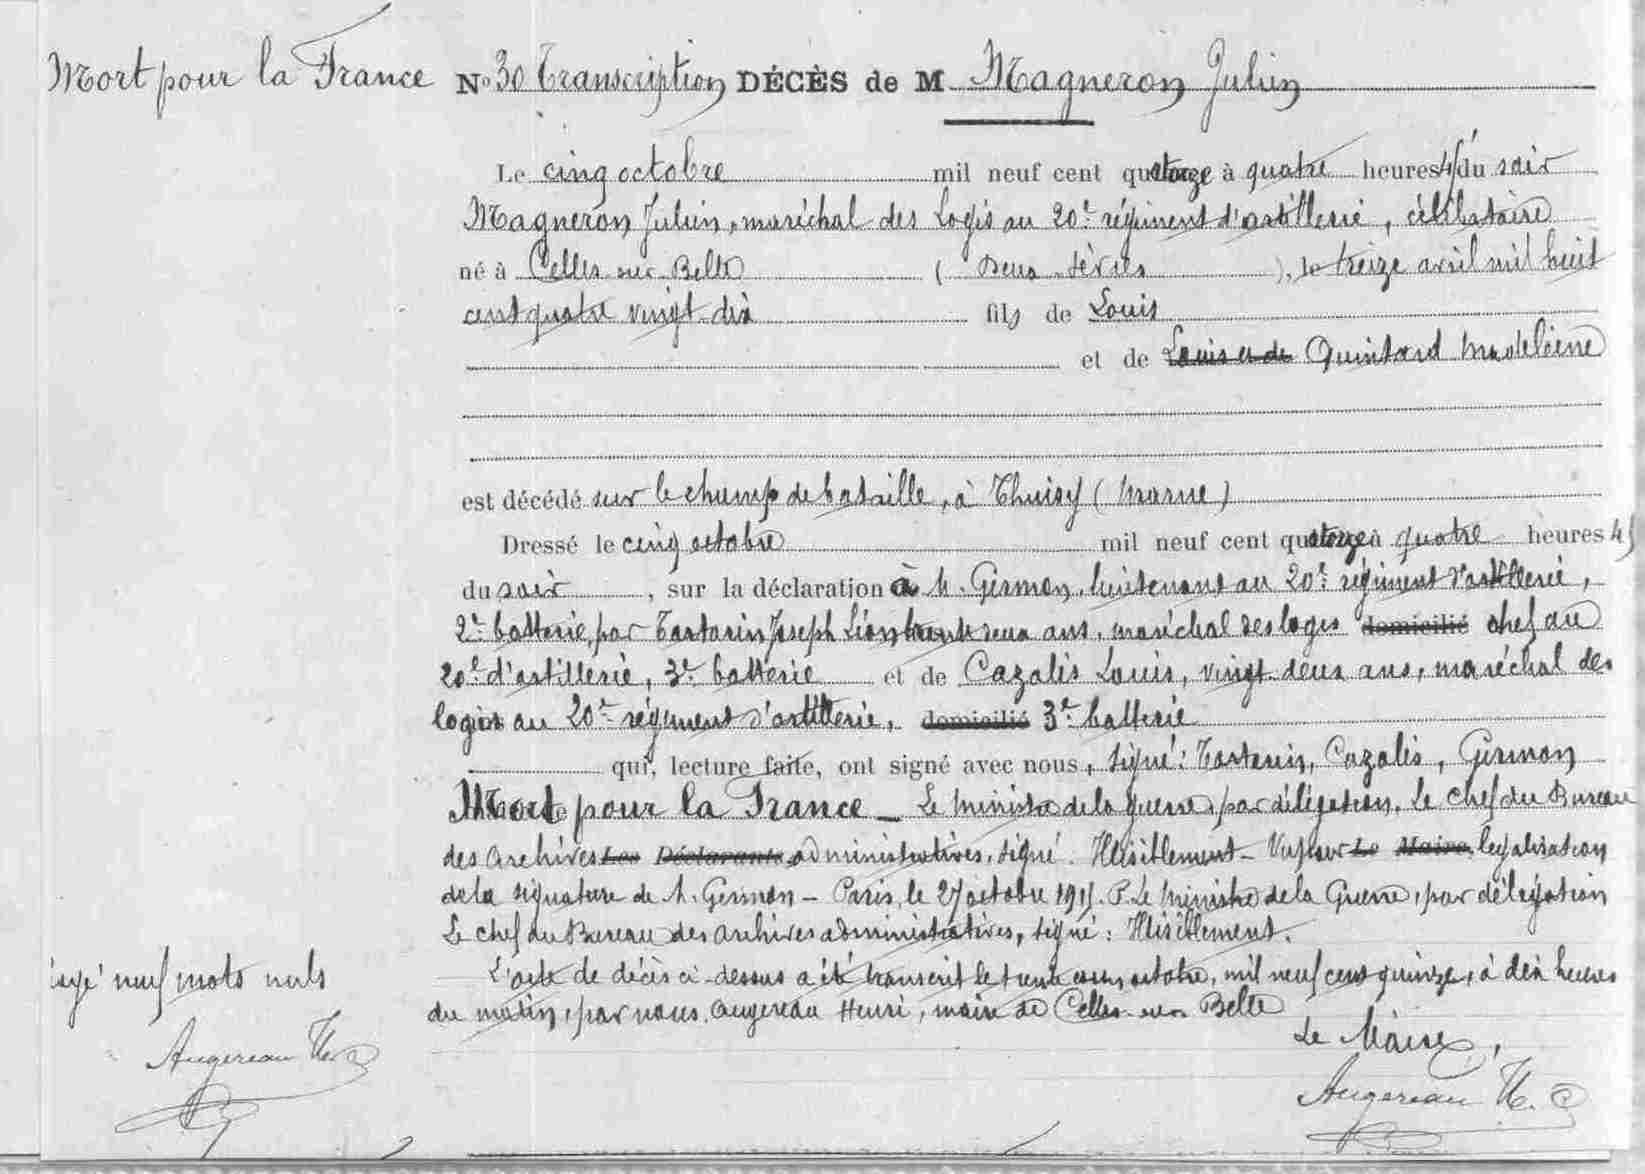 Mort pour la France
No 30 Transcription DÉCÈS de M Magneron Julien
Le cinq octobre mil neuf cent quatorze à quatre heures 45 du soir
Magneron Julien, maréchal des Logis au 20e régiment d'artillerie, célibataire
né à Celles-sur-Belle (Deux-Sèvres), le treize avril mil huit
cent quatre vingt-dix fils de Louis
et de Louis et de Quintard Madeleine
est décédé sur le champ de bataille, à Thuisy (Marne)
Dressé le cinq octobre mil neuf cent quatorze à quatre heures 45
du soir, sur la déclaration à M. Germon, lieutenant au 20e régiment d'artillerie,
2e batterie, par Tartarin Joseph Léon, trente deux ans, maréchal des logis domicilié chef au
20e d'artillerie, 3e batterie et de Cazalis Louis, vingt-deux ans, maréchal des
logis au 20e régiment d'artillerie, domicilié 3e batterie
qui, lecture faite, ont signé avec nous, signé: Tartarin, Cazalis, Germon
Mort pour la France – Le Ministre de la guerre, par délégation, Le chef du Bureau
des Archives Les Déclarants administratives, signé. Illisiblement – Vu pour Le Maire, légalisation
de la signature de M. Germon – Paris, le 27 octobre 1915. P. Le Ministre de la Guerre, par délégation
Le chef du Bureau des archives administratives, signé: Illisiblement.
L'acte de décès ci-dessus a été transcrit le trente octobre, mil neuf cent quinze, à dix heures
du matin, par nous, Augereau Henri, maire de Celles-sur-Belle
Le Maire,
Augereau H.
neuf mots nuls
Augereau H.